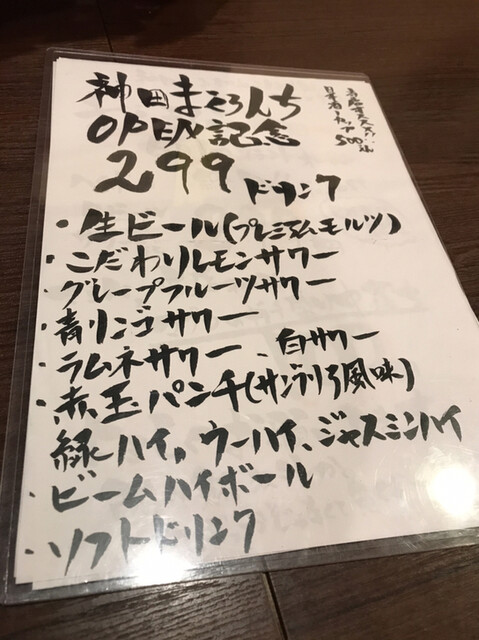 神田まそろんち
OPEN記念
299ドリンク
・生ビール(プレミアムモルツ)
・こだわりレモンサワー
・グレープフルーツサワー
・青リンゴサワー
・ラムネサワー、白サワー
・赤玉パンチ(サングリア風味)
緑ハイ、ウーハイ、ジャスミンハイ
・ビームハイボール
・ソフトドリンク
日本酒カップ
500